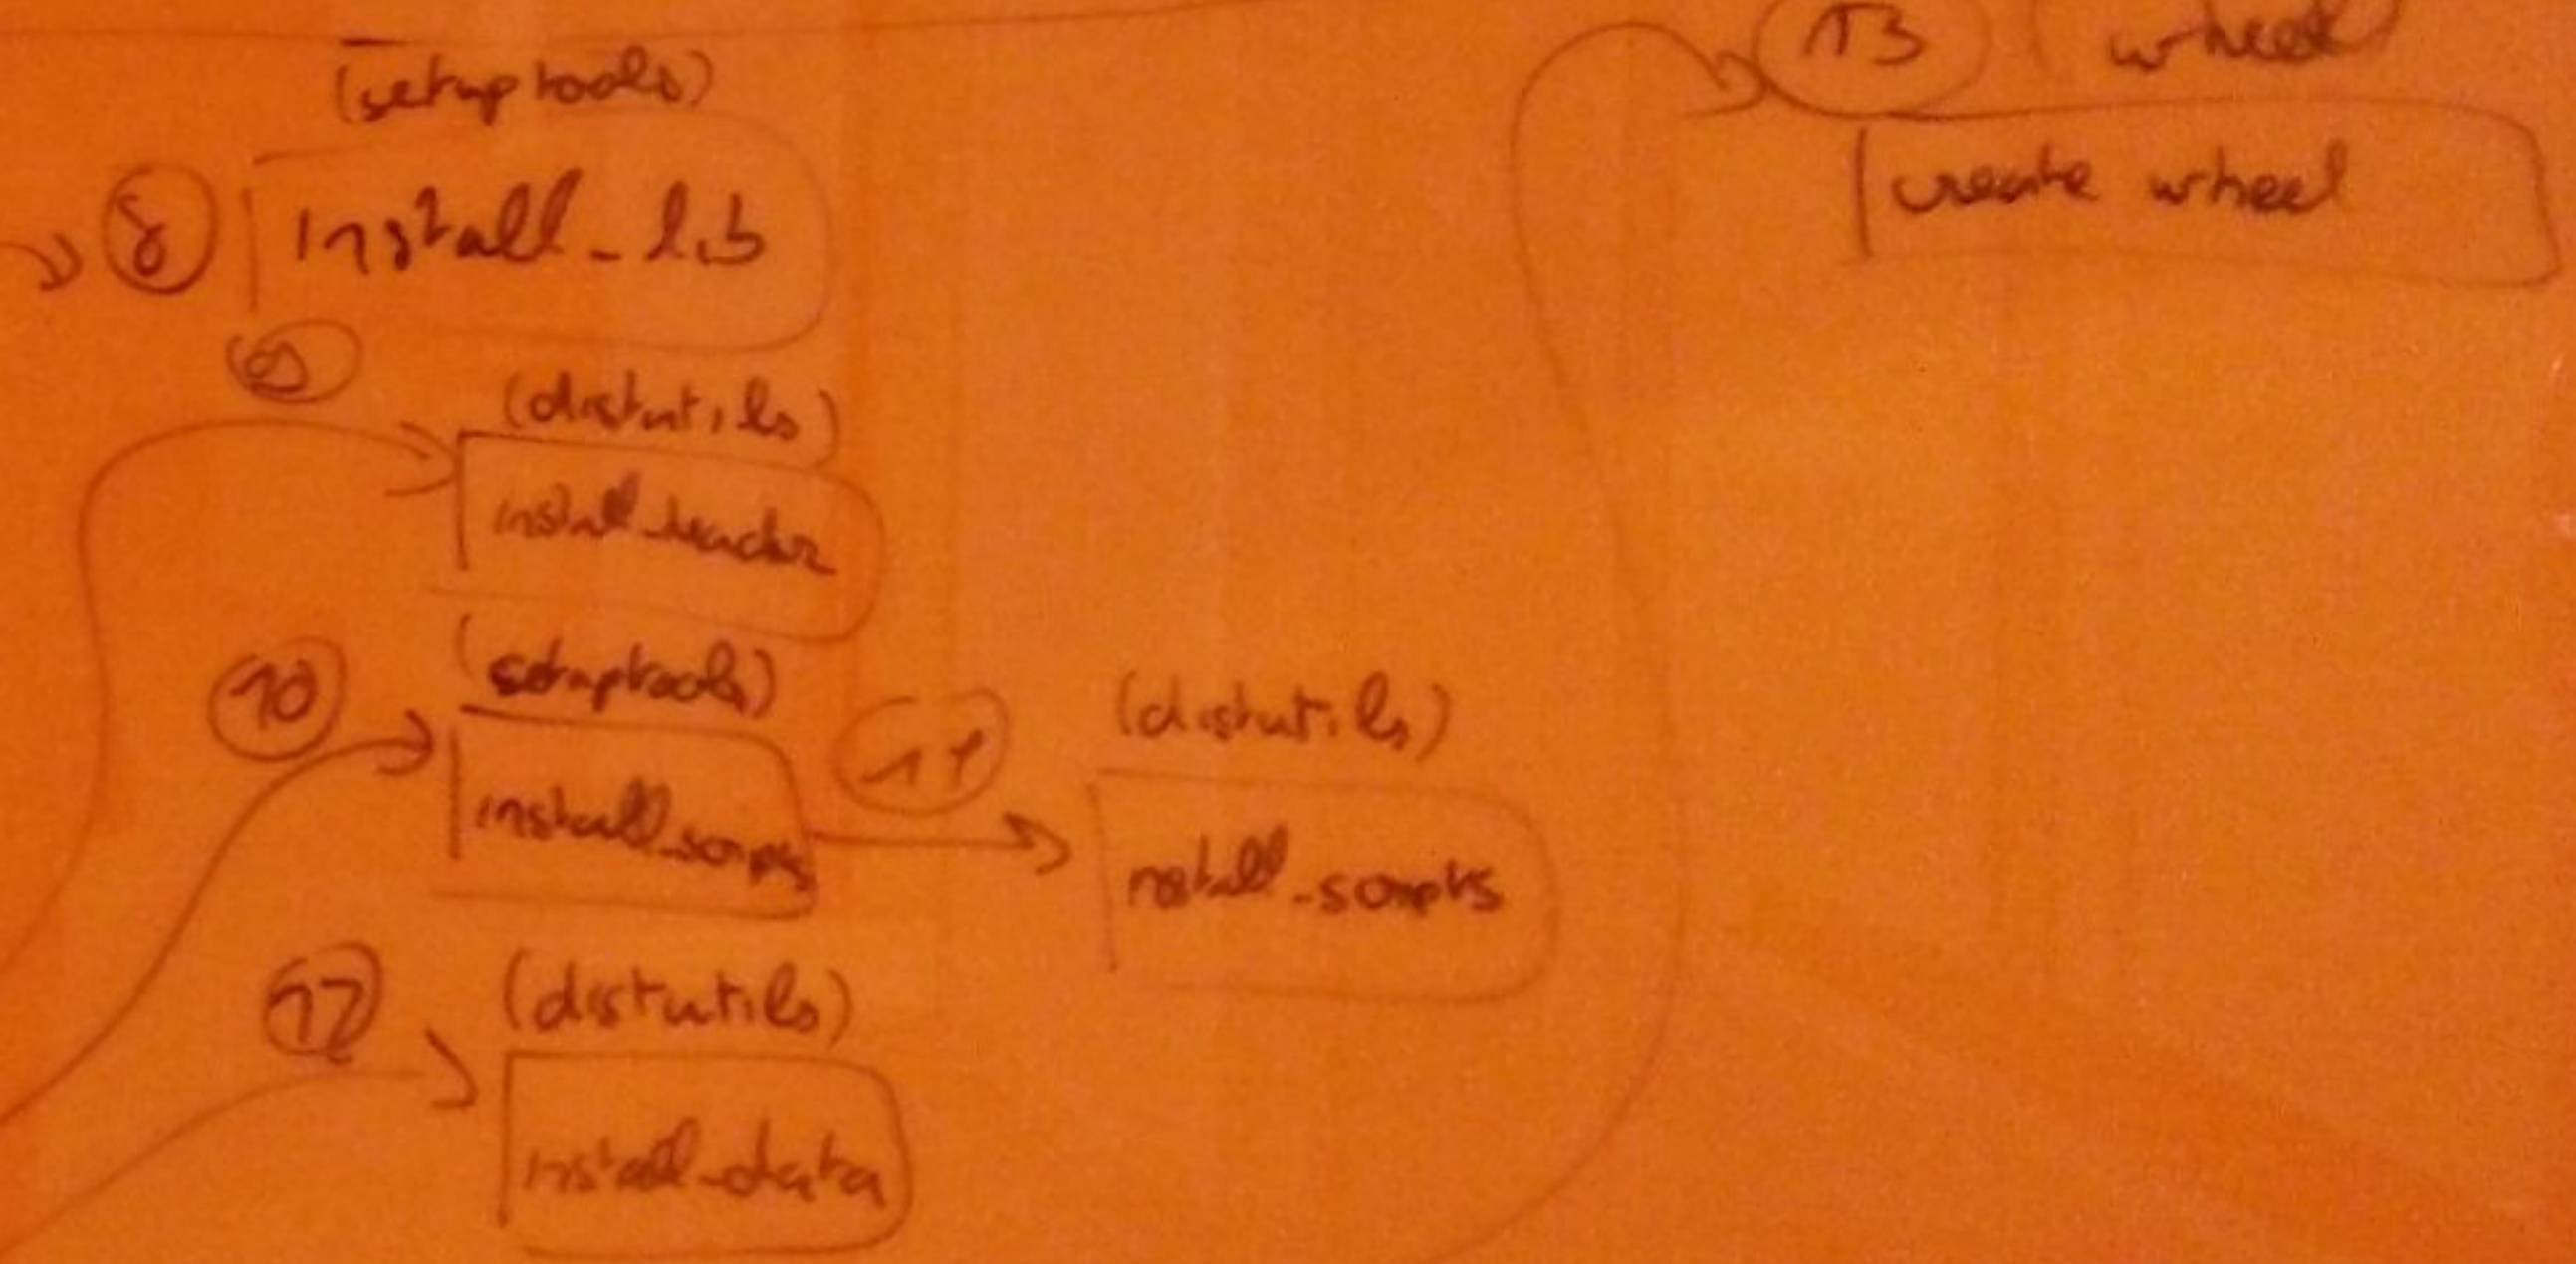 (setuptools)
8 install_lib
9
(distutils)
install_header
10 (setuptools)
install_scripts
11
(distutils)
install_scripts
12 (distutils)
install_data
13 (wheel)
create wheel